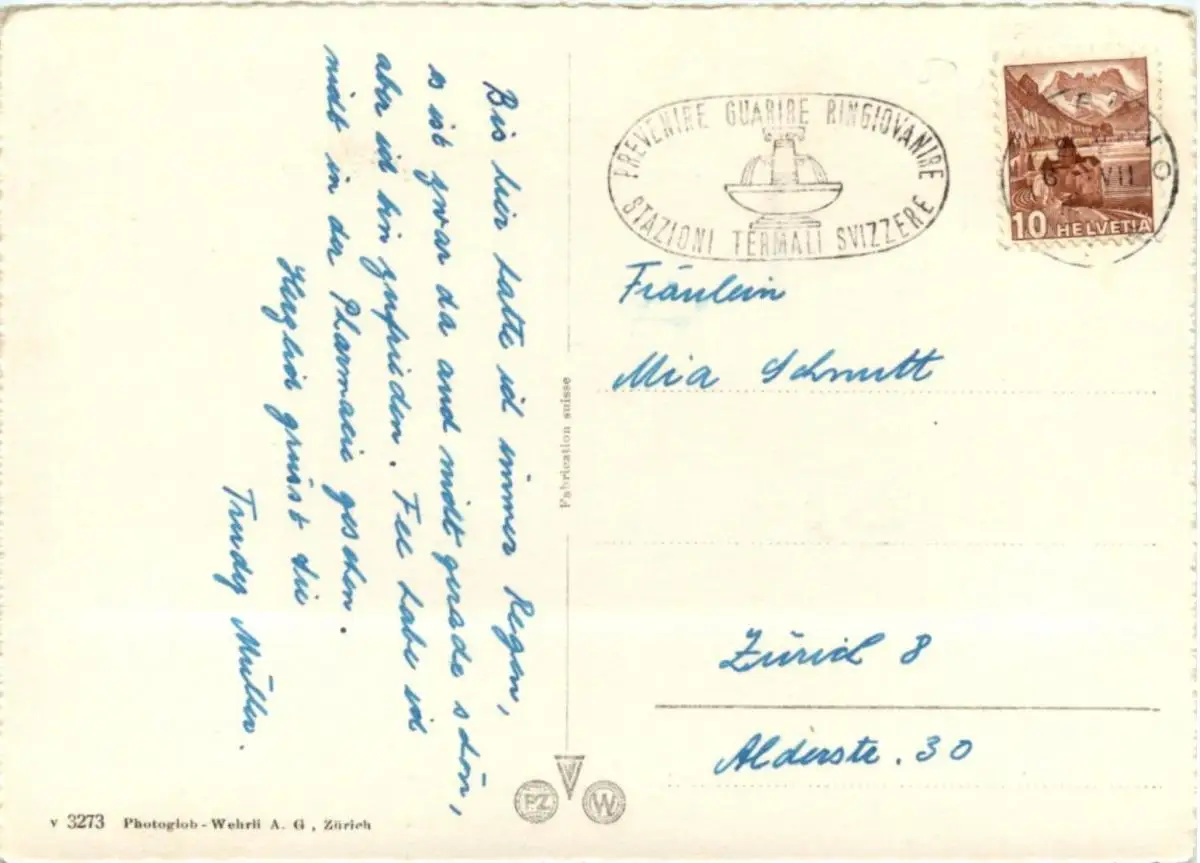 Bis hier hatte ich immer Regen,
es ist zwar da auch nicht gerade schön,
aber ich bin zufrieden. Fee habe ich
nicht in der Pharmacie gesehen.
Herzlich grüsst Sie
Trudy Müller.
Fabrication suisse
PREVENIRE GUARIRE RINGIOVANIRE
STAZIONI TERMALI SVIZZERE
VII
10 HELVETIA
Fräulein
Mia Schmutt
Zürich 8
Alderstr. 30
PZ W
v 3273 Photoglob-Wehrli A. G., Zürich